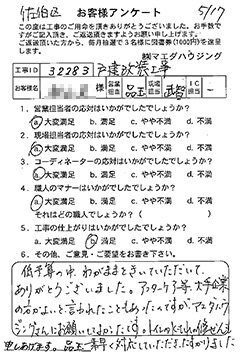 佐伯区
お客様アンケート
5/17
この度は工事のご用命を頂きありがとうございました。お手数で
すがご記入頂き、ご返送頂きますようお願い申し上げます。
ご返送頂いた方から、毎月抽選で3名様に図書券(1000円)を進呈
します。
㈱マエダハウジング
工事ID 32283 戸建改築工事
お客様名 様 営業担当 品玉 現場担当 IC担当 ー
1. 営業担当者の応対はいかがでしたでしょうか?
a 大変満足 b. 満足 c. やや不満 d. 不満
2. 現場担当者の応対はいかがでしたでしょうか?
a 大変満足 b. 満足 c. やや不満 d. 不満
3. コーディネーターの応対はいかがでしたでしょうか?
a 大変満足 b. 満足 c. やや不満 d. 不満
4. 職人のマナーはいかがでしたでしょうか?
a 大変満足 b. 満足 c. やや不満 d. 不満
それはどの職人でしょうか?( )
5. 工事の仕上がりはいかがでしたでしょうか?
a. 大変満足 b 満足 c. やや不満 d. 不満
6. その他、ご意見・ご要望をお書き下さい。
低予算の中、わがままきいていただいて、
ありがとうございました。アフターケア等、大手企業
の方がよいと言われたこともあったのですがマエダハウ
ジングさんにお願いしてよかったです。トイレの水もれの件ぜんも
申しあげます。品玉 素早く対応していただきたすかりました